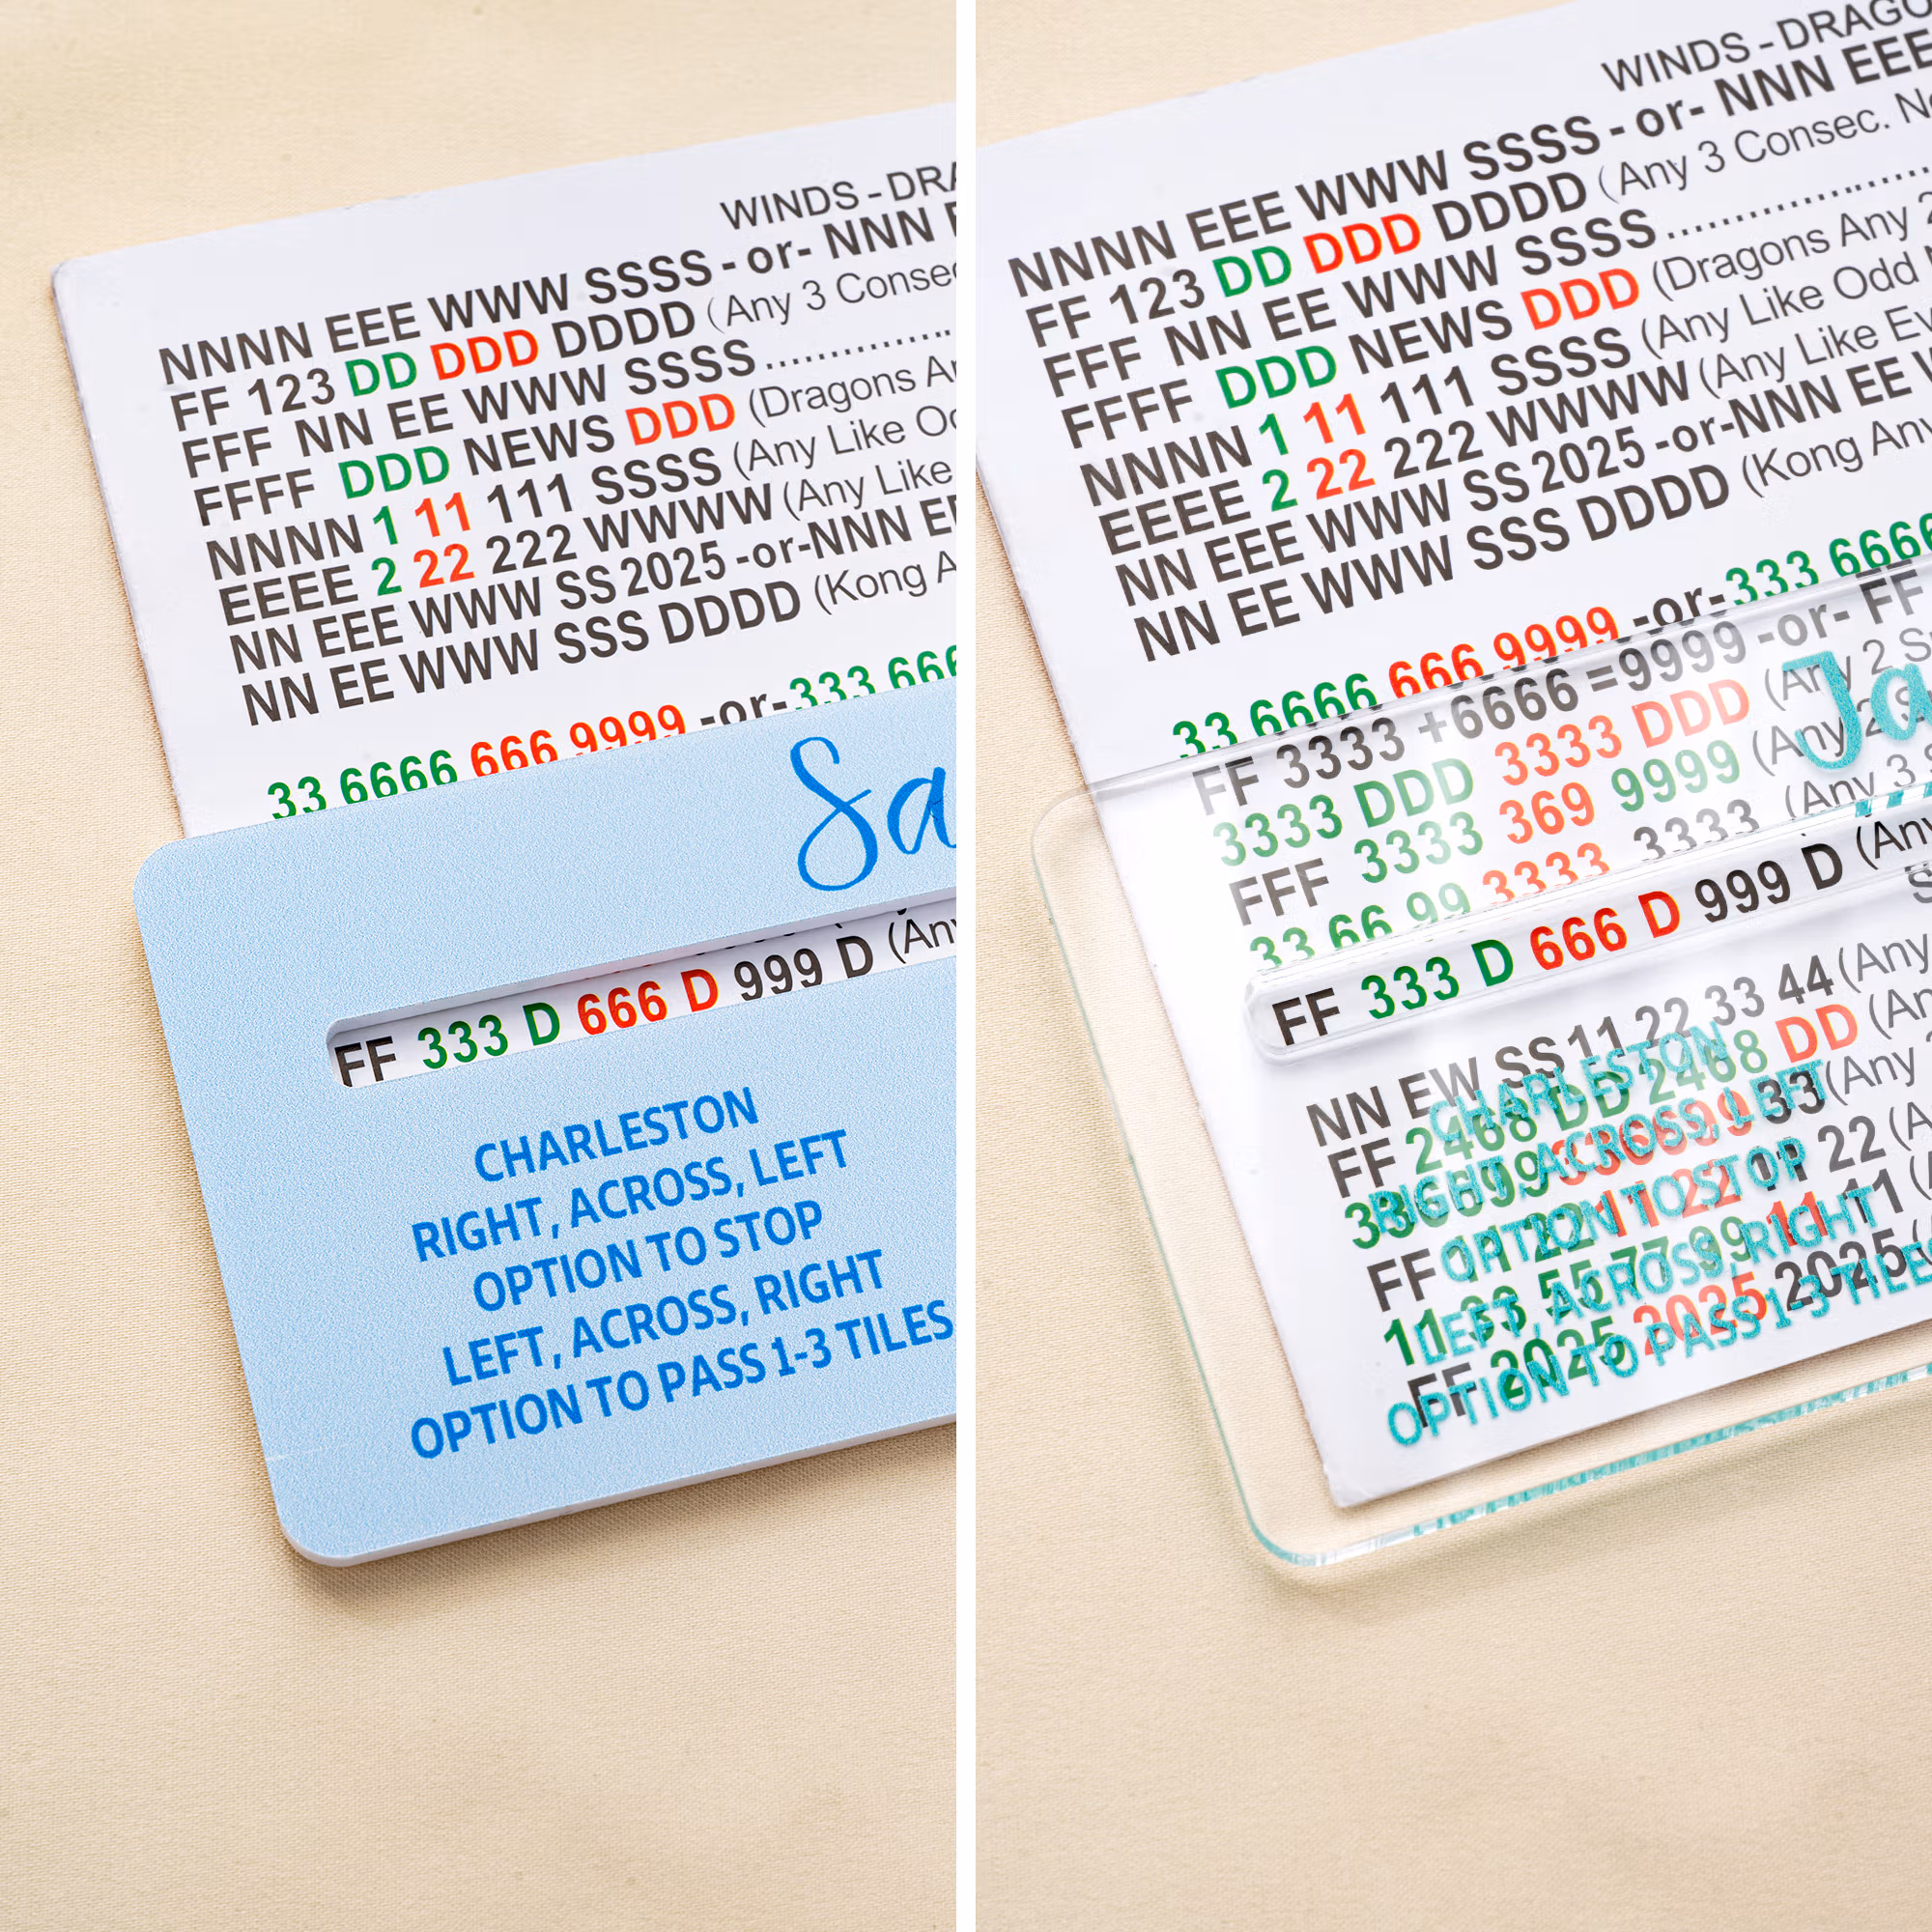 WINDS - DRA
NNNN EEE WWW SSSS - or- NNN E
FF 123 DD DDD DDDD (Any 3 Consec
FFF NN EE WWW SSSS
FFFF DDD NEWS DDD (Dragons An
NNNN 1 11 111 SSSS (Any Like Od
EEEE 2 22 222 WWWW (Any Like
NN EEE WWW SS 2025 -or-NNN EE
NN EE WWW SSS DDDD (Kong A
33 6666 666 9999 -or- 333 666
Sa
FF 333 D 666 D 999 D (Any
CHARLESTON
RIGHT, ACROSS, LEFT
OPTION TO STOP
LEFT, ACROSS, RIGHT
OPTION TO PASS 1-3 TILES
WINDS - DRAGO
NNNN EEE WWW SSSS - or- NNN EEE
FF 123 DD DDD DDDD (Any 3 Consec. No
FFF NN EE WWW SSSS
FFFF DDD NEWS DDD (Dragons Any 2
NNNN 1 11 111 SSSS (Any Like Odd
EEEE 2 22 222 WWWW (Any Like Ev
NN EEE WWW SS 2025 -or-NNN EE W
NN EE WWW SSS DDDD (Kong Any
33 6666 666 9999 -or- 333 6666
FF 3333 +6666 =9999 -or- FF
3333 DDD 3333 DDD (Any 2 S
FFF 3333 369 9999 (Any 2 S
33 66 99 3333 3333 (Any 3
Ja
FF 333 D 666 D 999 D (Any
NN EW SS 11 22 33 44 (Any
FF 2468 DD 2468 DD (An
336699 336699 33 (Any
FF 11 22 11 22 11 22 (A
11 33 55 77 99 11 11 (A
FF 2025 2025 2025
CHARLESTON
RIGHT, ACROSS, LEFT
OPTION TO STOP
LEFT, ACROSS, RIGHT
OPTION TO PASS 1-3 TILES